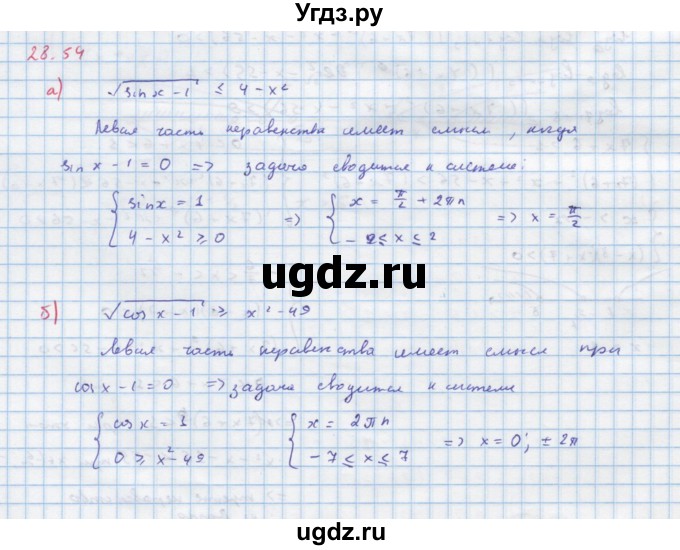 Угдз.ру
28.54
а) √(sin x - 1) ≤ 4 - x²
Левая часть неравенства имеет смысл, когда
sin x - 1 = 0 => задача сводится к системе:
{ sin x = 1
4 - x² ≥ 0 => { x = π/2 + 2πn
- 2 ≤ x ≤ 2 => x = π/2
ugdz.ru
б) √(cos x - 1) ≥ x² - 49
Левая часть неравенства имеет смысл при
cos x - 1 = 0 => задача сводится к системе
{ cos x = 1
0 ≥ x² - 49 { x = 2πn
- 7 ≤ x ≤ 7 => x = 0; ± 2π
ugdz.ru